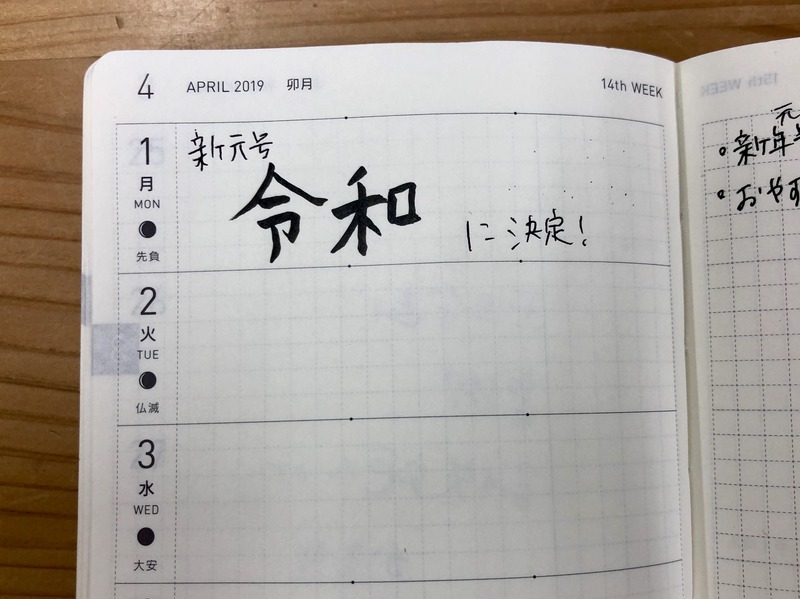 4 APRIL 2019 卯月 14th WEEK
1
月
MON
先負
新元号
令和 に決定!
2
火
TUE
仏滅
3
水
WED
大安
15th WEEK
元
新年号
おやす